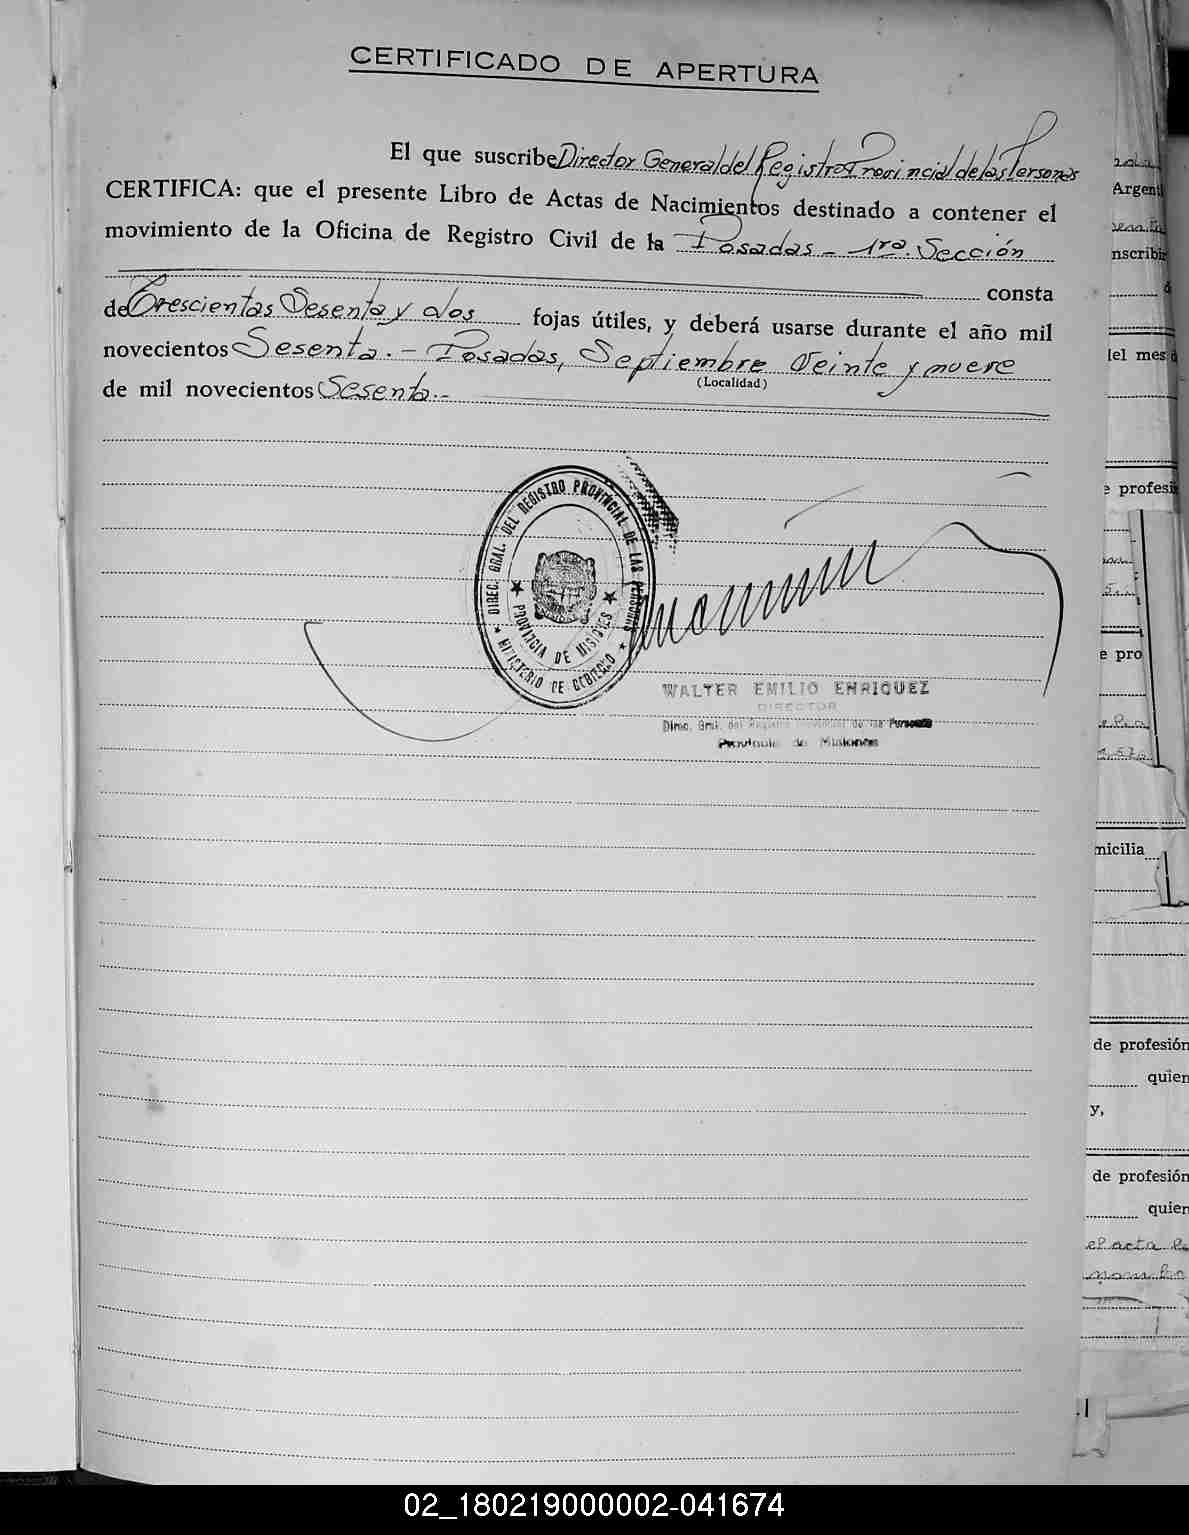 CERTIFICADO DE APERTURA
El que suscribe Director General del Registro Provincial de las Personas
CERTIFICA: que el presente Libro de Actas de Nacimientos destinado a contener el
movimiento de la Oficina de Registro Civil de la Posadas - 1ra. Sección
consta
de Trescientas Sesenta y dos fojas útiles, y deberá usarse durante el año mil
novecientos Sesenta. - Posadas, Septiembre Veinte y nueve
(Localidad)
de mil novecientos Sesenta.-
DIREC. GRAL. DEL REGISTRO PROVINCIAL DE LAS PERSONAS
PROVINCIA DE MISIONES
MINISTERIO DE GOBIERNO
WALTER EMILIO ENRIQUEZ
DIRECTOR
Direc. Gral. del Registro Provincial de las Personas
Provincia de Misiones
Argent
nscribi
del mes d
e profesi
e pro
micilia
de profesión
quien
y,
de profesión
quien
el acta
02_180219000002-041674